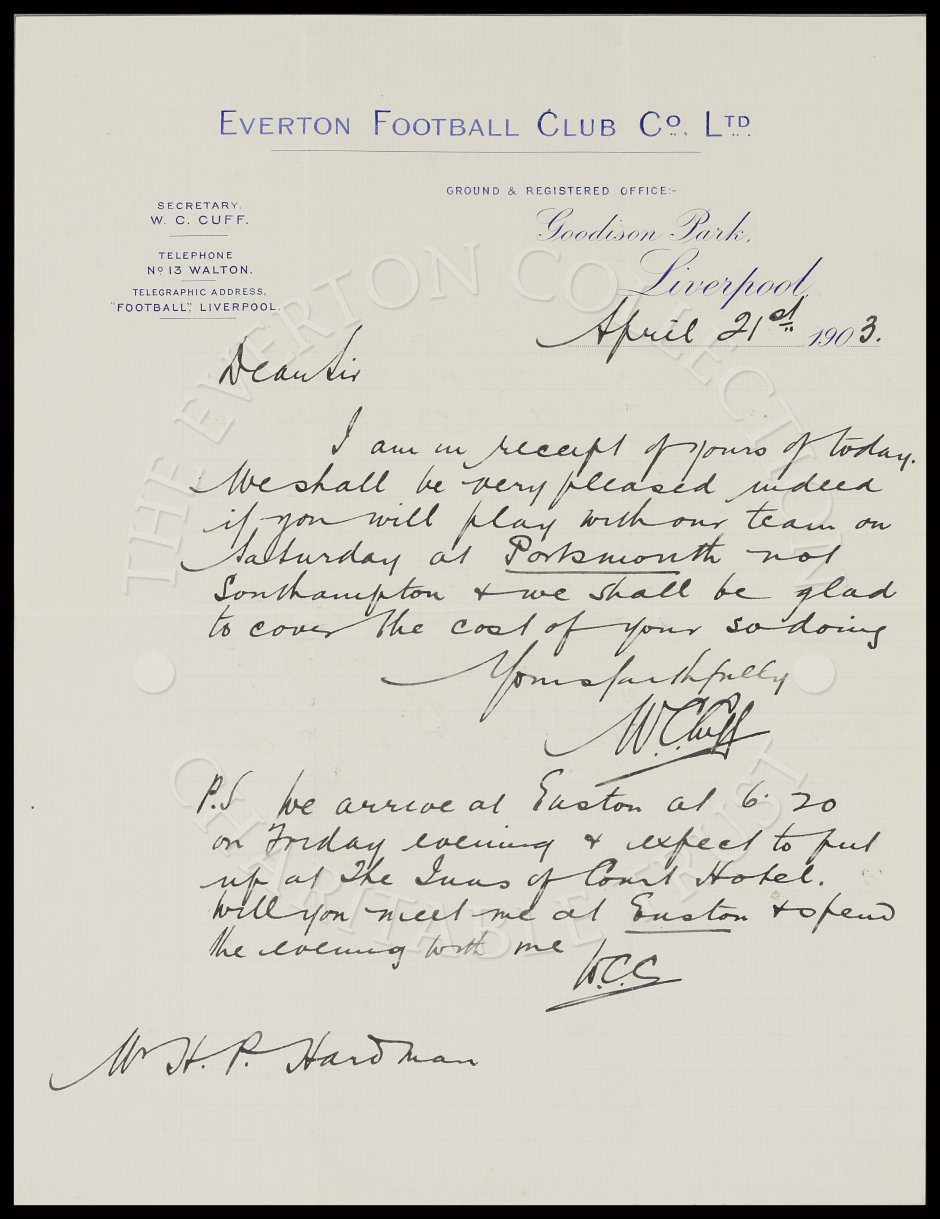 EVERTON FOOTBALL CLUB Co., LTD.
GROUND & REGISTERED OFFICE:-
Goodison Park,
Liverpool,
SECRETARY.
W. C. CUFF.
TELEPHONE
No 13 WALTON.
TELEGRAPHIC ADDRESS,
"FOOTBALL", LIVERPOOL.
April 21st 1903.
Dear Sir
I am in receipt of yours of today.
We shall be very pleased indeed
if you will play with our team on
Saturday at Portsmouth not
Southampton & we shall be glad
to cover the cost of your so doing
Yours faithfully
W.C. Cuff
P.S We arrive at Euston at 6.20
on Friday evening & expect to put
up at The Inns of Court Hotel.
Will you meet me at Euston & spend
the evening with me
W.C.C
Mr H. P. Hardman
THE EVERTON COLLECTION
CHARITABLE TRUST